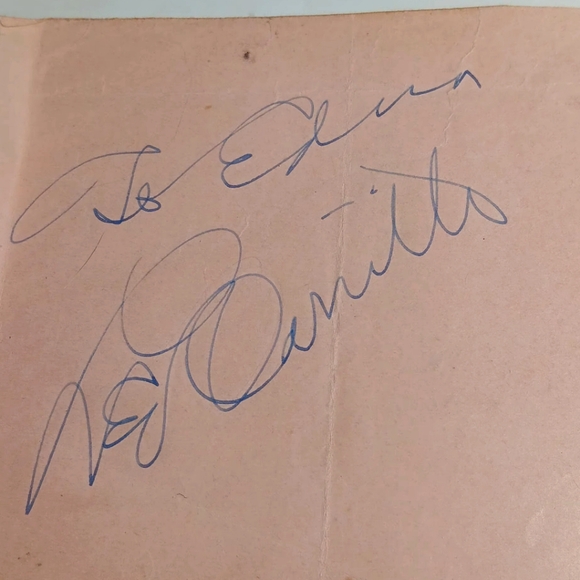 To Edna
Leo Carrillo